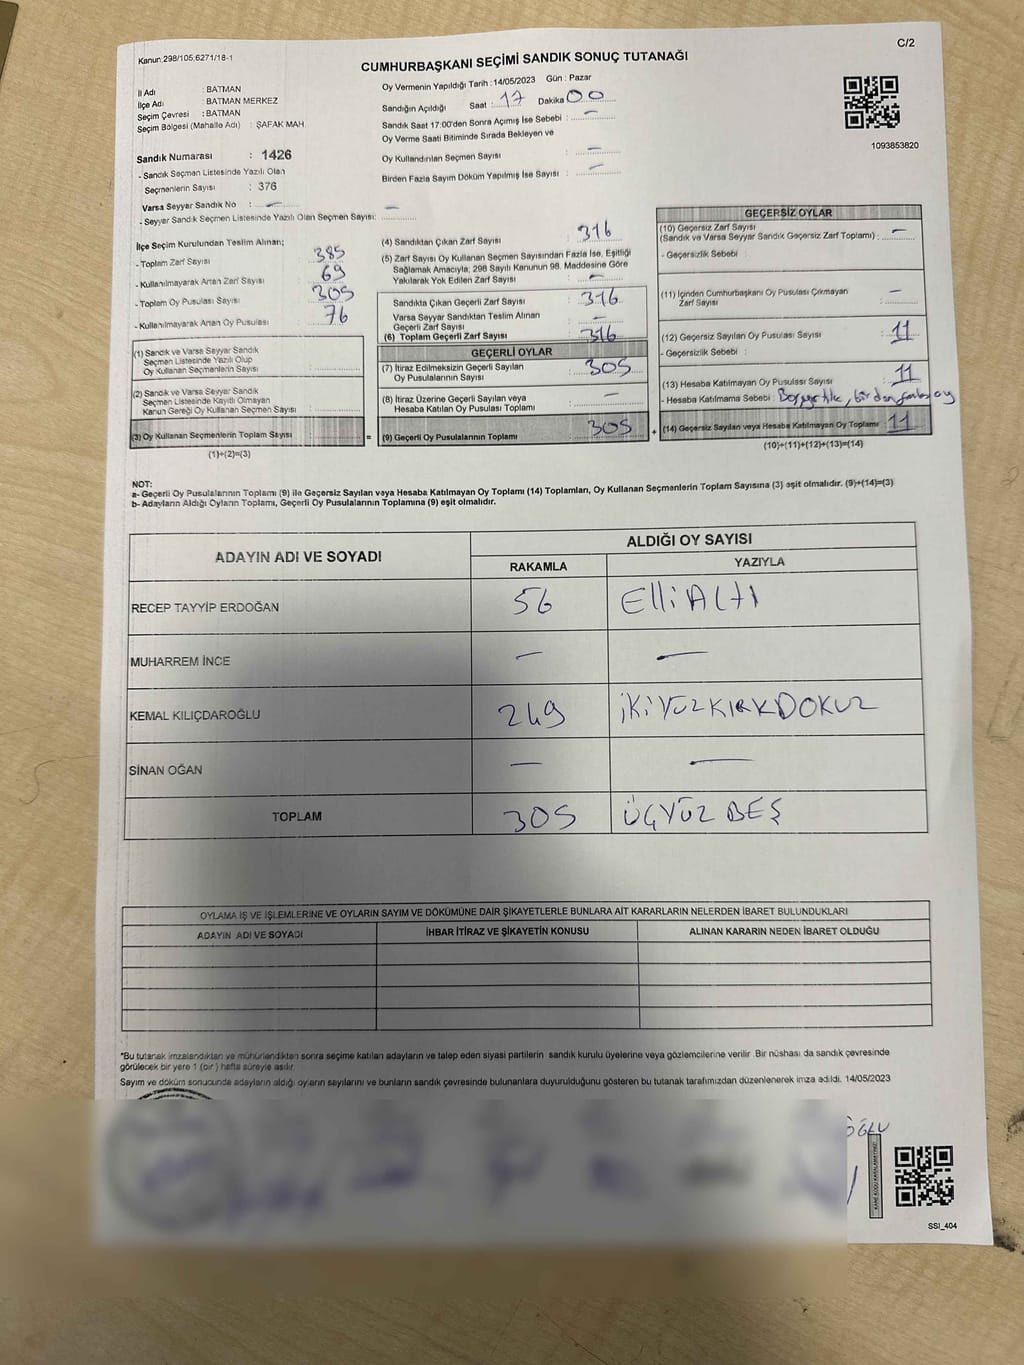 C/2
Kanun 298/105,6271/18-1
CUMHURBAŞKANI SEÇİMİ SANDIK SONUÇ TUTANAĞI
İl Adı : BATMAN
İlçe Adı : BATMAN MERKEZ
Seçim Çevresi : BATMAN
Seçim Bölgesi (Mahalle Adı) : ŞAFAK MAH.
Oy Vermenin Yapıldığı Tarih : 14/05/2023 Gün : Pazar
Sandığın Açıldığı Saat : 17 Dakika 00
Sandık Saat 17:00'den Sonra Açımış İse Sebebi : —
Oy Verme Saati Bitiminde Sırada Bekleyen ve
Oy Kullandırılan Seçmen Sayısı : —
Birden Fazla Sayım Döküm Yapılmış İse Sayısı : —
1093853820
Sandık Numarası : 1426
- Sandık Seçmen Listesinde Yazılı Olan
Seçmenlerin Sayısı : 376
Varsa Seyyar Sandık No : —
- Seyyar Sandık Seçmen Listesinde Yazılı Olan Seçmen Sayısı: —
İlçe Seçim Kurulundan Teslim Alınan;
- Toplam Zarf Sayısı : 385
- Kullanılmayarak Artan Zarf Sayısı : 69
- Toplam Oy Pusulası Sayısı : 305
- Kullanılmayarak Artan Oy Pusulası : 76
(1) Sandık ve Varsa Seyyar Sandık
Seçmen Listesinde Yazılı Olup
Oy Kullanan Seçmenlerin Sayısı :
(2) Sandık ve Varsa Seyyar Sandık
Seçmen Listesinde Kayıtlı Olmayan
Kanun Gereği Oy Kullanan Seçmen Sayısı :
(3) Oy Kullanan Seçmenlerin Toplam Sayısı : =
(1)+(2)=(3)
(4) Sandıktan Çıkan Zarf Sayısı : 316
(5) Zarf Sayısı Oy Kullanan Seçmen Sayısından Fazla İse, Eşitliği
Sağlamak Amacıyla; 298 Sayılı Kanunun 98. Maddesine Göre
Yakılarak Yok Edilen Zarf Sayısı : —
Sandıkta Çıkan Geçerli Zarf Sayısı : 316
Varsa Seyyar Sandıktan Teslim Alınan
Geçerli Zarf Sayısı : —
(6) Toplam Geçerli Zarf Sayısı : 316
GEÇERLİ OYLAR
(7) İtiraz Edilmeksizin Geçerli Sayılan
Oy Pusulalarının Sayısı : 305
(8) İtiraz Üzerine Geçerli Sayılan veya
Hesaba Katılan Oy Pusulası Toplamı : —
(9) Geçerli Oy Pusulalarının Toplamı : 305 +
GEÇERSİZ OYLAR
(10) Geçersiz Zarf Sayısı
(Sandık ve Varsa Seyyar Sandık Geçersiz Zarf Toplamı) : —
- Geçersizlik Sebebi :
(11) İçinden Cumhurbaşkanı Oy Pusulası Çıkmayan
Zarf Sayısı : —
(12) Geçersiz Sayılan Oy Pusulası Sayısı : 11
- Geçersizlik Sebebi :
(13) Hesaba Katılmayan Oy Pusulası Sayısı : 11
- Hesaba Katılmama Sebebi : bir den fazla oy
(14) Geçersiz Sayılan veya Hesaba Katılmayan Oy Toplamı : 11
(10)+(11)+(12)+(13)=(14)
NOT:
a- Geçerli Oy Pusulalarının Toplamı (9) ile Geçersiz Sayılan veya Hesaba Katılmayan Oy Toplamı (14) Toplamları, Oy Kullanan Seçmenlerin Toplam Sayısına (3) eşit olmalıdır. (9)+(14)=(3)
b- Adayların Aldığı Oyların Toplamı, Geçerli Oy Pusulalarının Toplamına (9) eşit olmalıdır.
ADAYIN ADI VE SOYADI ALDIĞI OY SAYISI
RAKAMLA YAZIYLA
RECEP TAYYİP ERDOĞAN 56 Elli Altı
MUHARREM İNCE — —
KEMAL KILIÇDAROĞLU 249 İKİ YÜZ KIRK DOKUZ
SİNAN OĞAN — —
TOPLAM 305 ÜÇYÜZ BEŞ
OYLAMA İŞ VE İŞLEMLERİNE VE OYLARIN SAYIM VE DÖKÜMÜNE DAİR ŞİKAYETLERLE BUNLARA AİT KARARLARIN NELERDEN İBARET BULUNDUKLARI
ADAYIN ADI VE SOYADI İHBAR İTİRAZ VE ŞİKAYETİN KONUSU ALINAN KARARIN NEDEN İBARET OLDUĞU
*Bu tutanak imzalandıktan ve mühürlendikten sonra seçime katılan adayların ve talep eden siyasi partilerin sandık kurulu üyelerine veya gözlemcilerine verilir. Bir nüshası da sandık çevresinde
görülecek bir yere 1 (bir) hafta süreyle asılır.
Sayım ve döküm sonucunda adayların aldığı oyların sayılarını ve bunların sandık çevresinde bulunanlara duyurulduğunu gösteren bu tutanak tarafımızdan düzenlenerek imza edildi. 14/05/2023
SSI_404